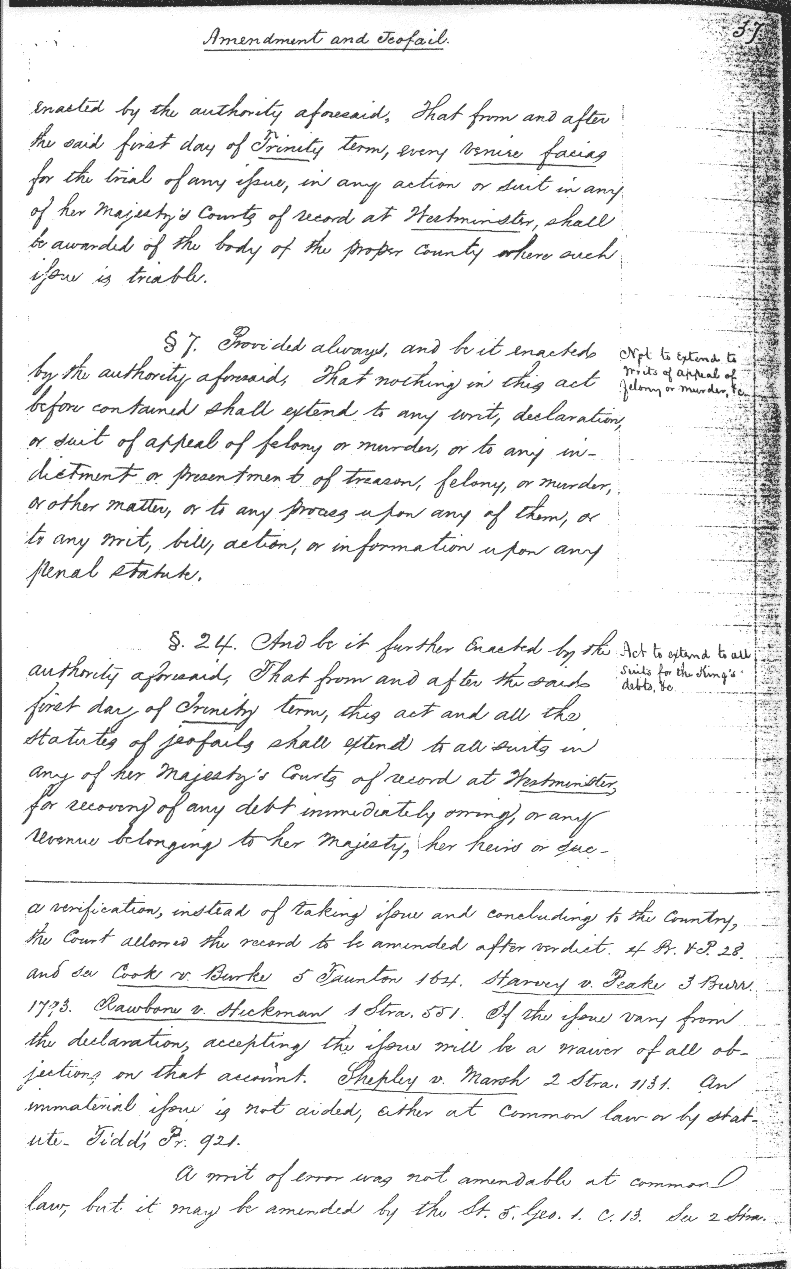 Amendment and Jeofail.
37.
enacted by the authority aforesaid, That from and after
the said first day of Trinity term, every venire facias
for the trial of any issue, in any action or suit in any
of her Majesty's Courts of record at Westminster, shall
be awarded of the body of the proper county where such
issue is triable.
§ 7. Provided always, and be it enacted
by the authority aforesaid, That nothing in this act
before contained shall extend to any writ, declaration,
or suit of appeal of felony or murder, or to any in-
dictment or presentment of treason, felony, or murder,
or other matter, or to any process upon any of them, or
to any writ, bill, action, or information upon any
penal statute.
Not to extend to
writs of appeal of
felony or murder, &c.
§. 24. And be it further Enacted by the
authority aforesaid, That from and after the said
first day of Trinity term, this act and all the
statutes of jeofails shall extend to all suits in
any of her Majesty's Courts of record at Westminster,
for recovery of any debt immediately owing, or any
revenue belonging to her Majesty, her heirs or suc-
Act to extend to all
suits for the King's
debts, &c
a verification, instead of taking issue and concluding to the Country,
the Court allowed the record to be amended after verdict. 4 Br. & P. 28.
and see Cook v. Burke 5 Taunton 164. Harvey v. Peake 3 Burr.
1793. Rawbone v. Hickman 1 Stra. 551. If the issue vary from
the declaration, accepting the issue will be a waiver of all ob-
jections on that account. Shepley v. Marsh 2 Stra. 1131. An
immaterial issue is not aided, either at common law or by stat-
ute. Tidd's Pr. 921.
A writ of error was not amendable at common
law, but it may be amended by the St. 5. Geo. 1. c. 13. See 2 Stra.